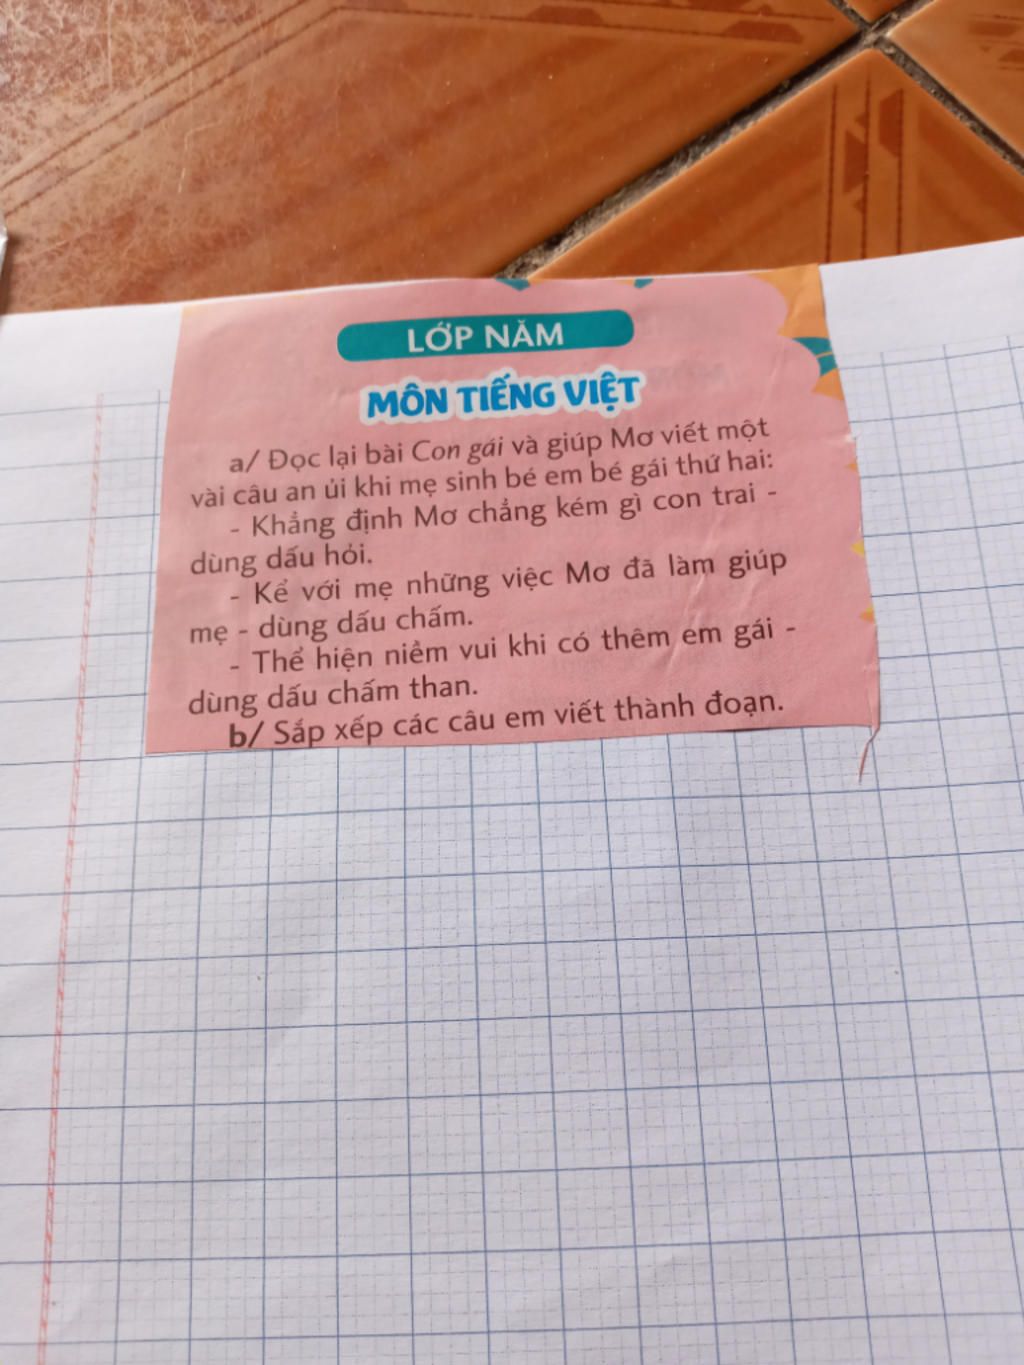 LỚP NĂM
MÔN TIẾNG VIỆT
a/ Đọc lại bài Con gái và giúp Mơ viết một
vài câu an ủi khi mẹ sinh bé em bé gái thứ hai:
- Khẳng định Mơ chẳng kém gì con trai -
dùng dấu hỏi.
- Kể với mẹ những việc Mơ đã làm giúp
mẹ - dùng dấu chấm.
- Thể hiện niềm vui khi có thêm em gái -
dùng dấu chấm than.
b/ Sắp xếp các câu em viết thành đoạn.